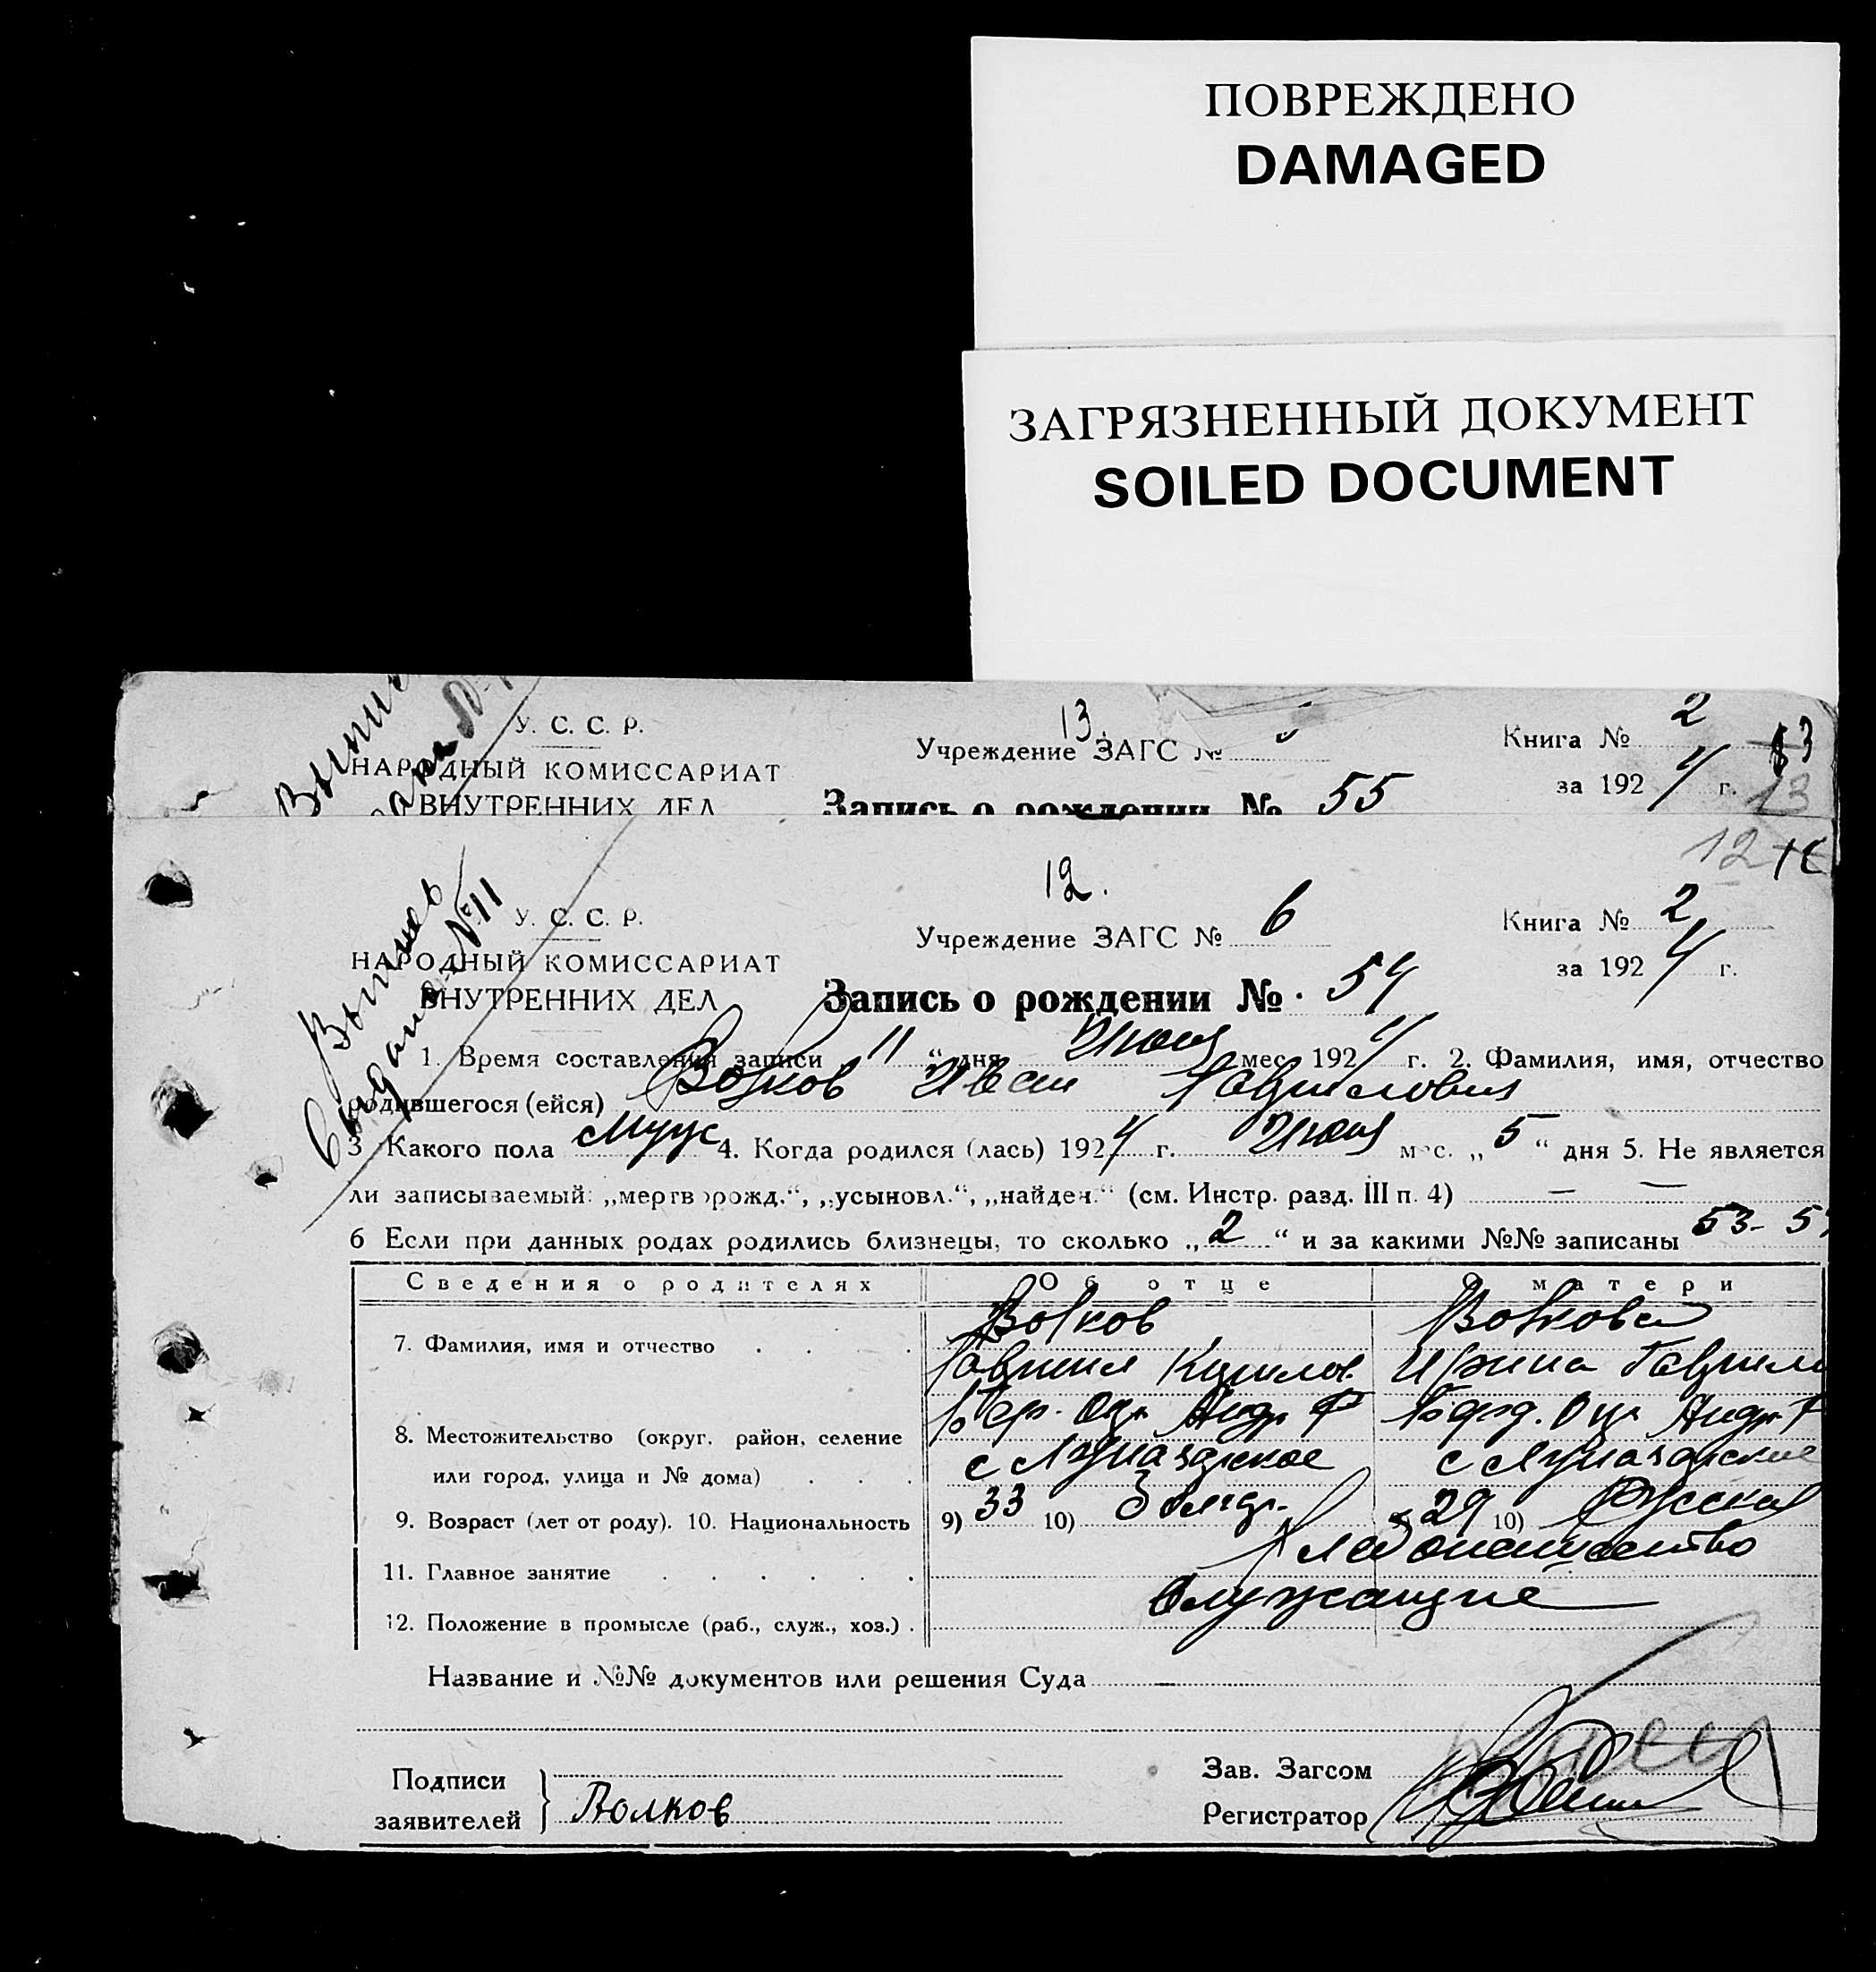 ПОВРЕЖДЕНО
DAMAGED
ЗАГРЯЗНЕННЫЙ ДОКУМЕНТ
SOILED DOCUMENT
У. С. С. Р.
НАРОДНЫЙ КОМИССАРИАТ
ВНУТРЕННИХ ДЕЛ
13.
Учреждение ЗАГС №
Запись о рождении № 55
Книга № 2
за 1924 г.
13
12
12.
У. С. С. Р.
НАРОДНЫЙ КОМИССАРИАТ
ВНУТРЕННИХ ДЕЛ
Учреждение ЗАГС № 6
Запись о рождении № 54
Книга № 2
за 1924 г.
№ 11
1. Время составления записи „ 11 “ дня Июня мес. 1924 г. 2. Фамилия, имя, отчество
родившегося (ейся) Волков Иван Гаврилович
3. Какого пола Муж 4. Когда родился (лась) 1924 г. Июня мес. „ 5 “ дня 5. Не является
ли записываемый: „мертворожд.“, „усыновл.“, „найден.“ (см. Инстр. разд. III п. 4) — —
6 Если при данных родах родились близнецы, то сколько „ 2 “ и за какими №№ записаны 53 - 54
Сведения о родителях Об отце О матери
7. Фамилия, имя и отчество Волков Волкова
Гавриил Ирина Гаврил
8. Местожительство (округ, район, селение
или город, улица и № дома)
9. Возраст (лет от роду). 10. Национальность 9) 33 10) 29 10) Русская
11. Главное занятие
12. Положение в промысле (раб., служ., хоз.) Служащие
Название и №№ документов или решения Суда —
Подписи
заявителей } Волков
Зав. Загсом
Регистратор